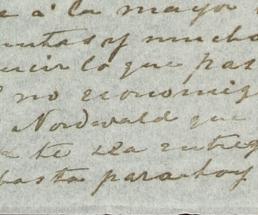 e á la mayor
untas y mucha
ucir lo que pas
no economi
Nordwald que
te la entreg
basta para hoy